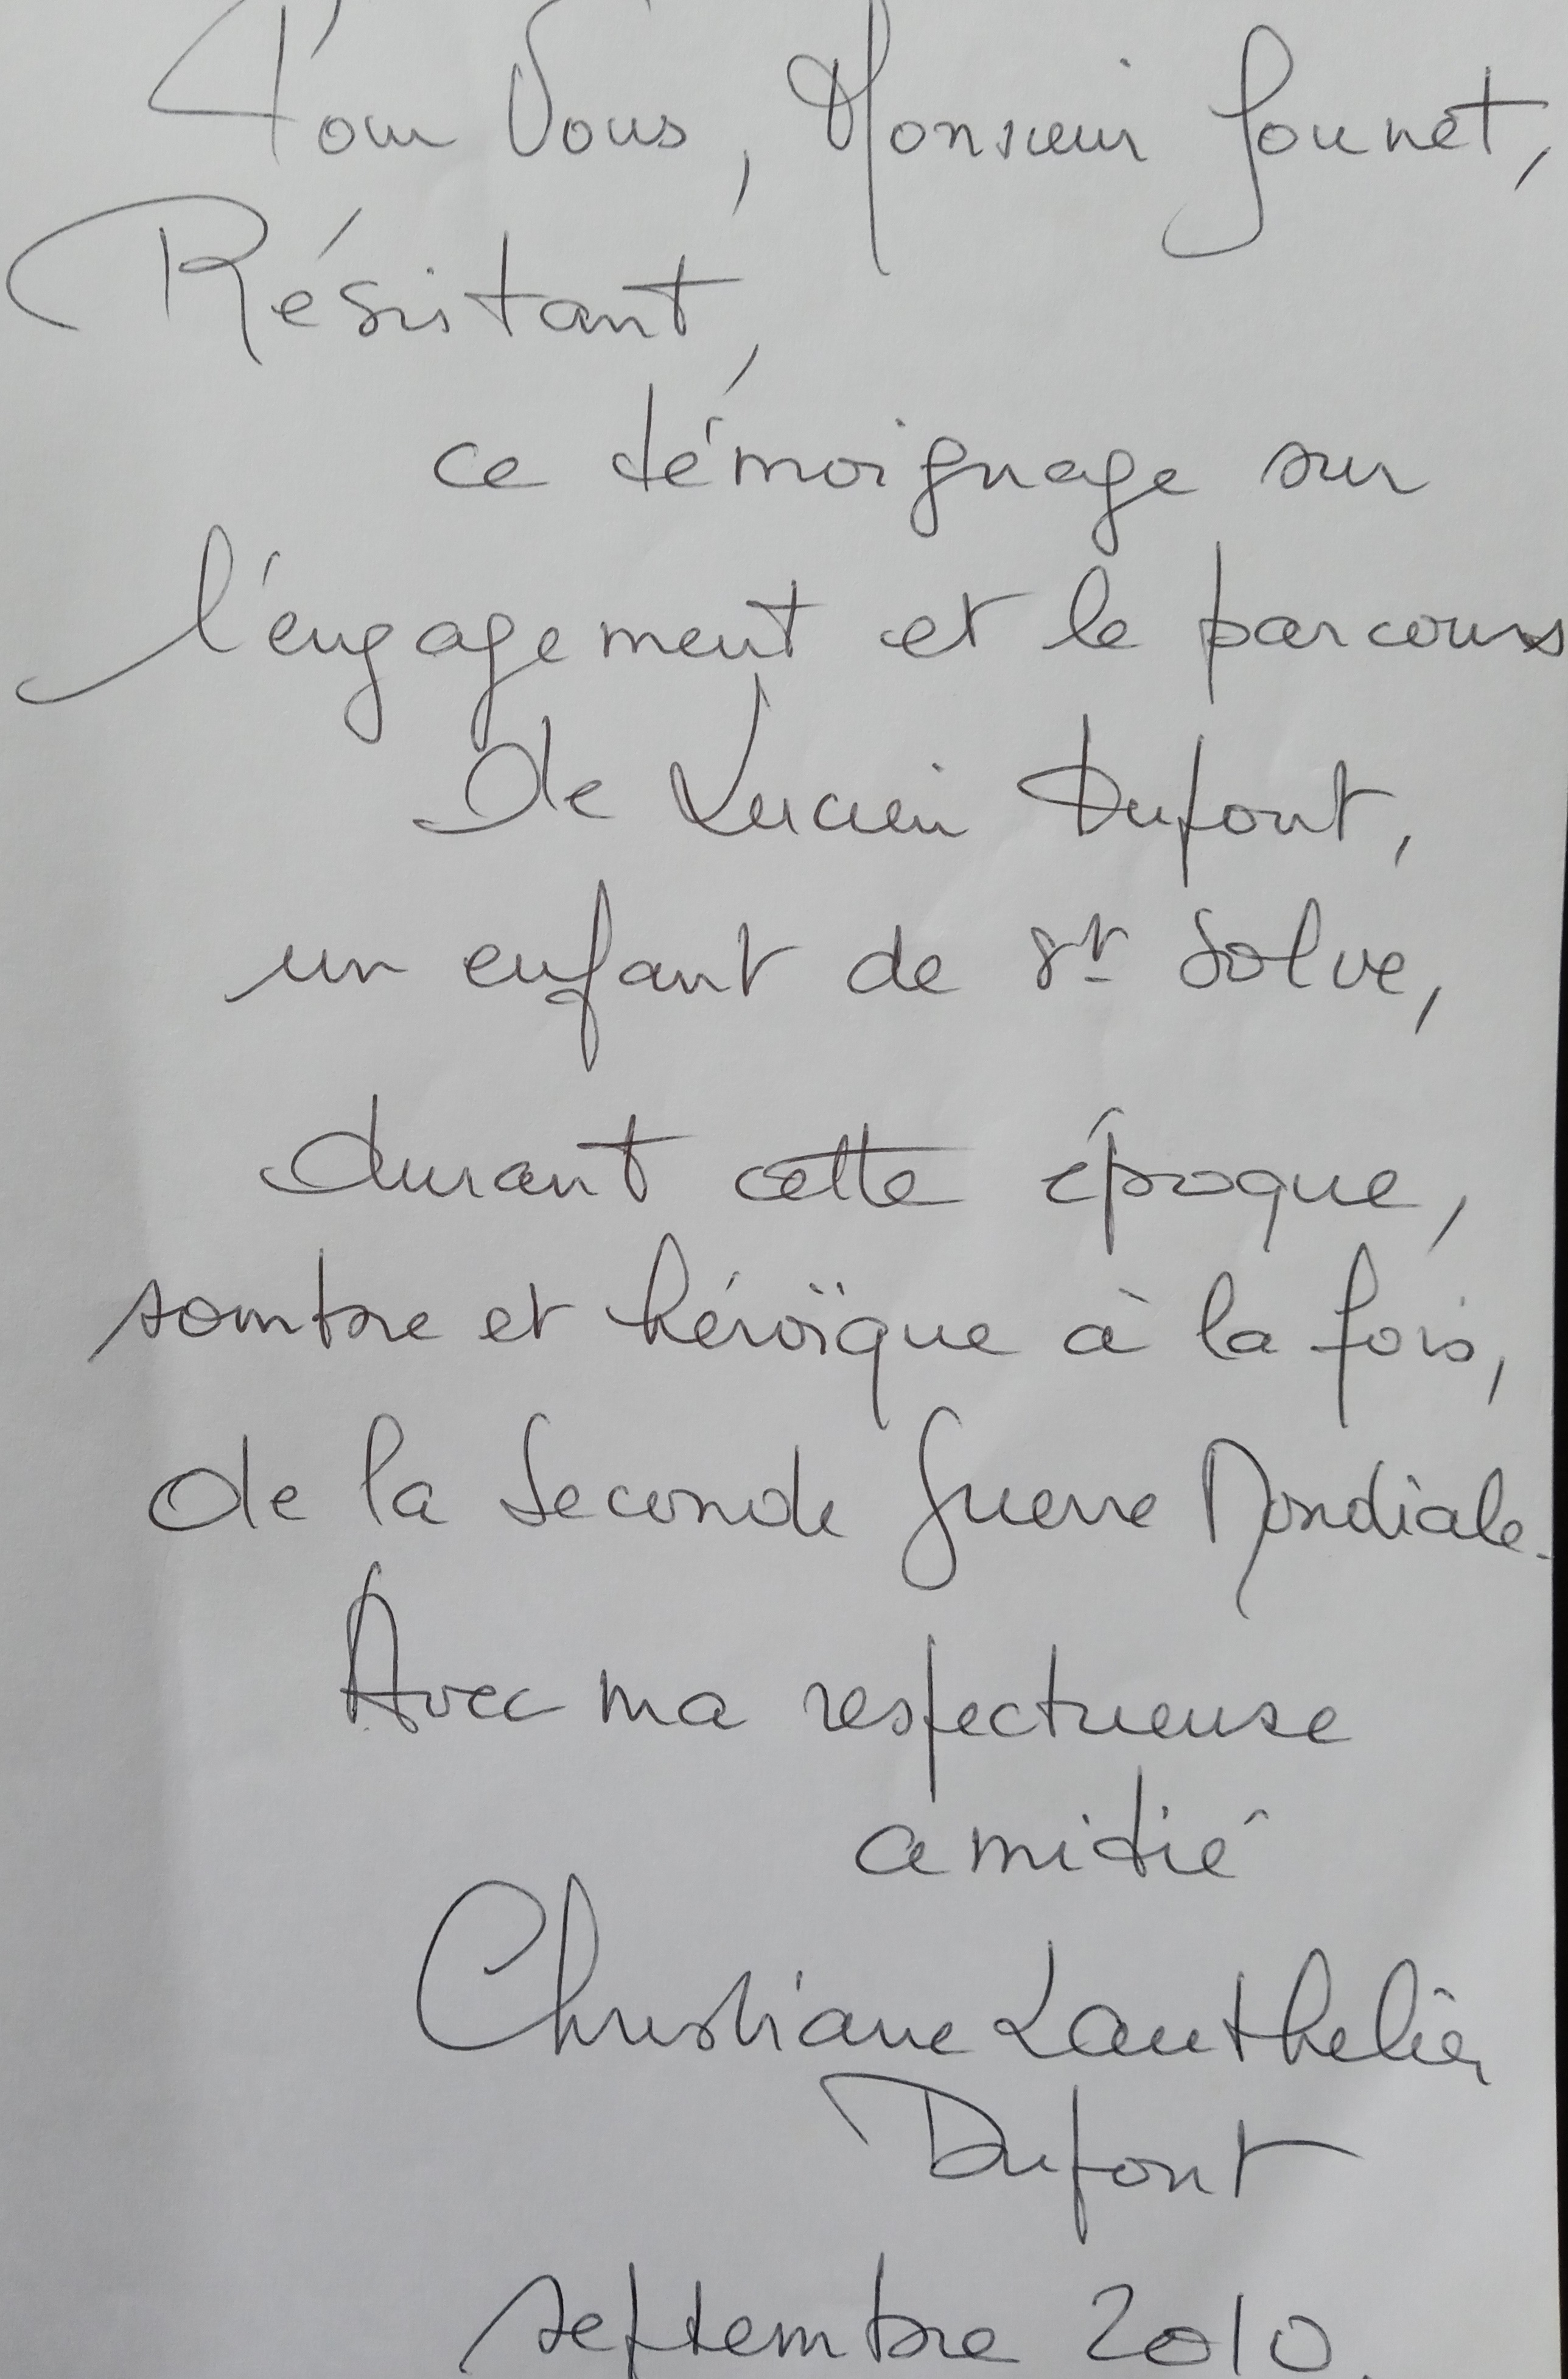 Pour Vous, Monsieur Gounet,
Résistant,
ce témoignage sur
l'engagement et le parcours
De Lucien Dupont,
un enfant de St Solve,
durant cette époque,
sombre et héroïque à la fois,
de la Seconde Guerre Mondiale.
Avec ma respectueuse
amitié
Christiane Lanthelier
Dupont
septembre 2010.